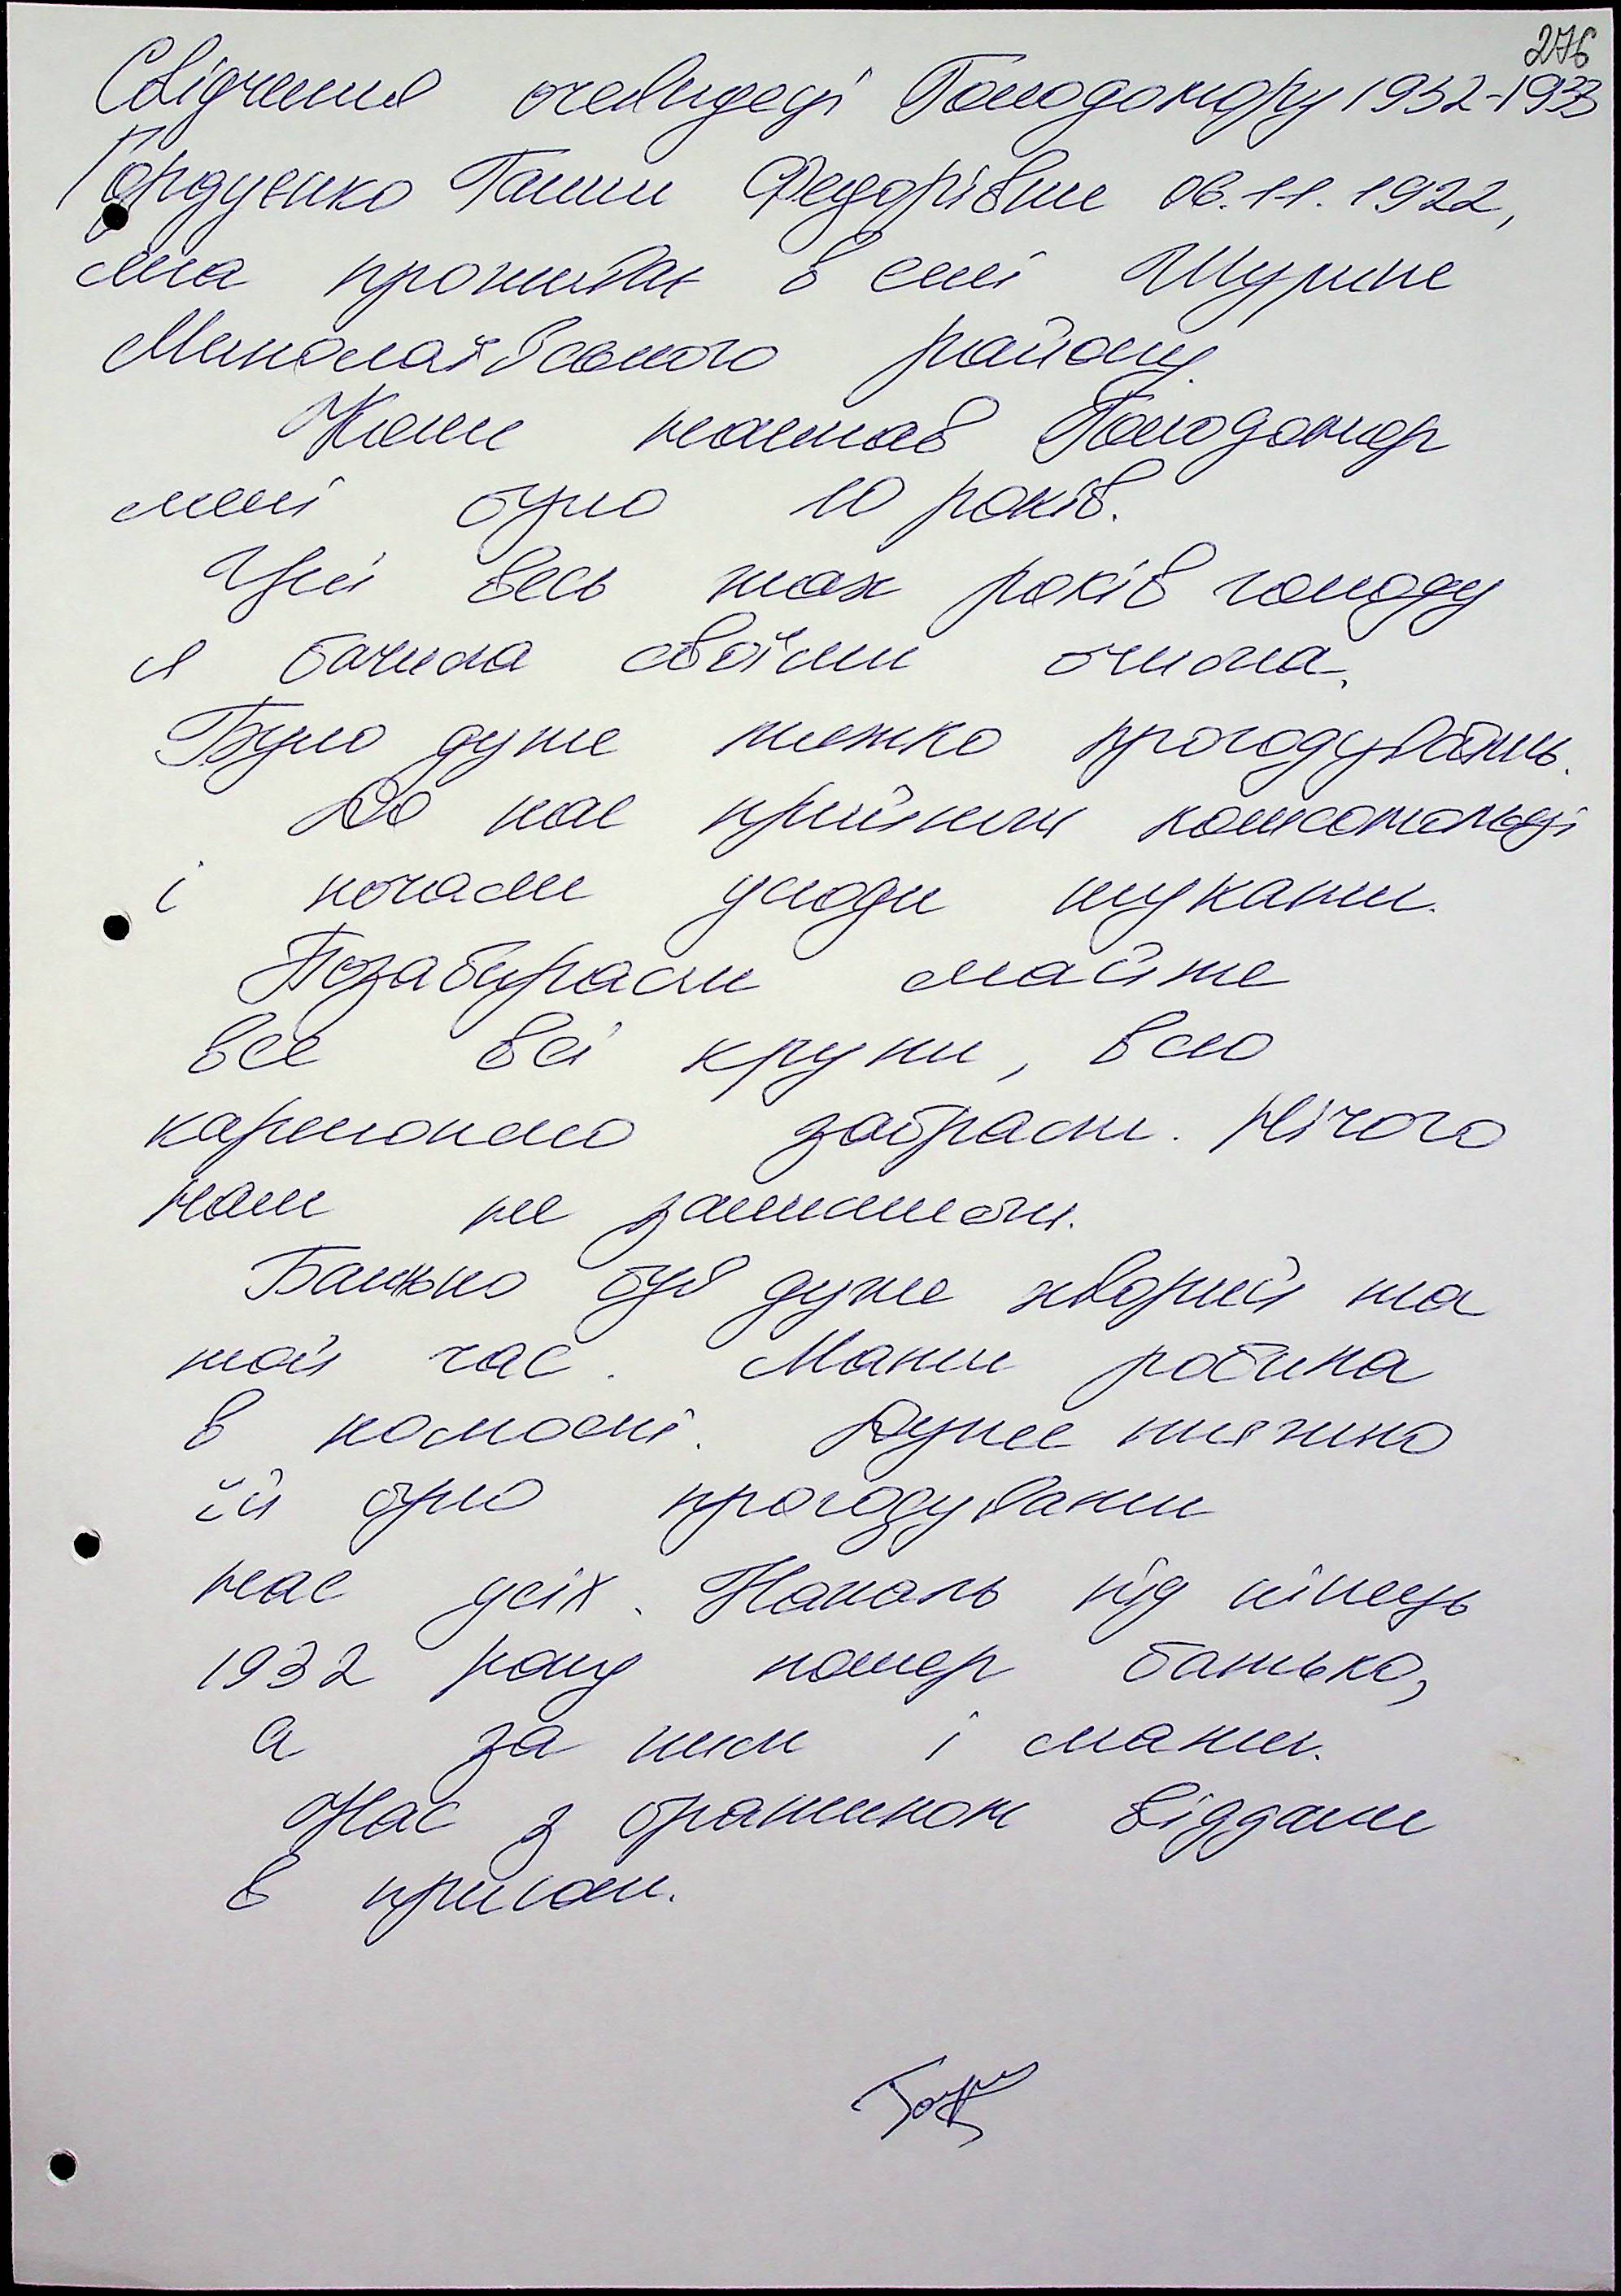 276
Свідчення очевидеці Голодомору 1932-1933
Гордуенко Ганни Федорівни 06.11.1922,
яка проживає в селі
Миколаївського району.
Коли настав Голодомор
мені було 10 років.
Цей весь жах років голоду
я бачила своїми очима.
Було дуже тяжко прогодувать.
До нас прийшли комсомольці
і почали усюди шукати.
Позабирали майже
все всі крупи, всю
картоплю забрали. Нічого
нам не залишили.
Батько був дуже хворий на
той час. Мати робила
в колхозі. Дуже тяжко
їй було прогодувати
нас усіх. На жаль під кінець
1932 року помер батько,
а за ним і мати.
Нас з братиком віддали
в приют.